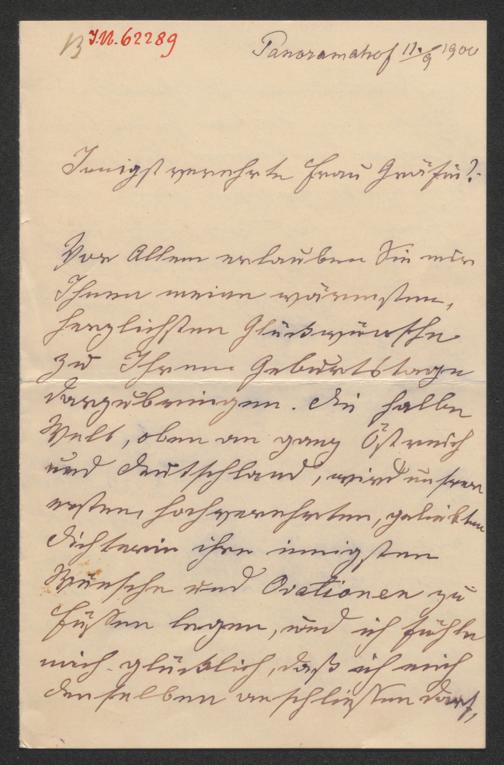 B J.N. 62289
Panoramahof 11./9 1900
Innigst verehrte Frau Gräfin!
Vor Allem erlauben Sie mir
Ihnen meine wärmsten,
herzlichsten Glückwünsche
zu Ihrem Geburtstage
darzubringen. Die halbe
Welt, oben an ganz Östreich
und Deutschland, wird unserer
ersten, hochverehrten, geliebten
Dichterin ihre innigsten
Wünsche und Ovationen zu
Füßen legen, und ich fühle
mich glücklich, daß ich mich
denselben anschließen darf,